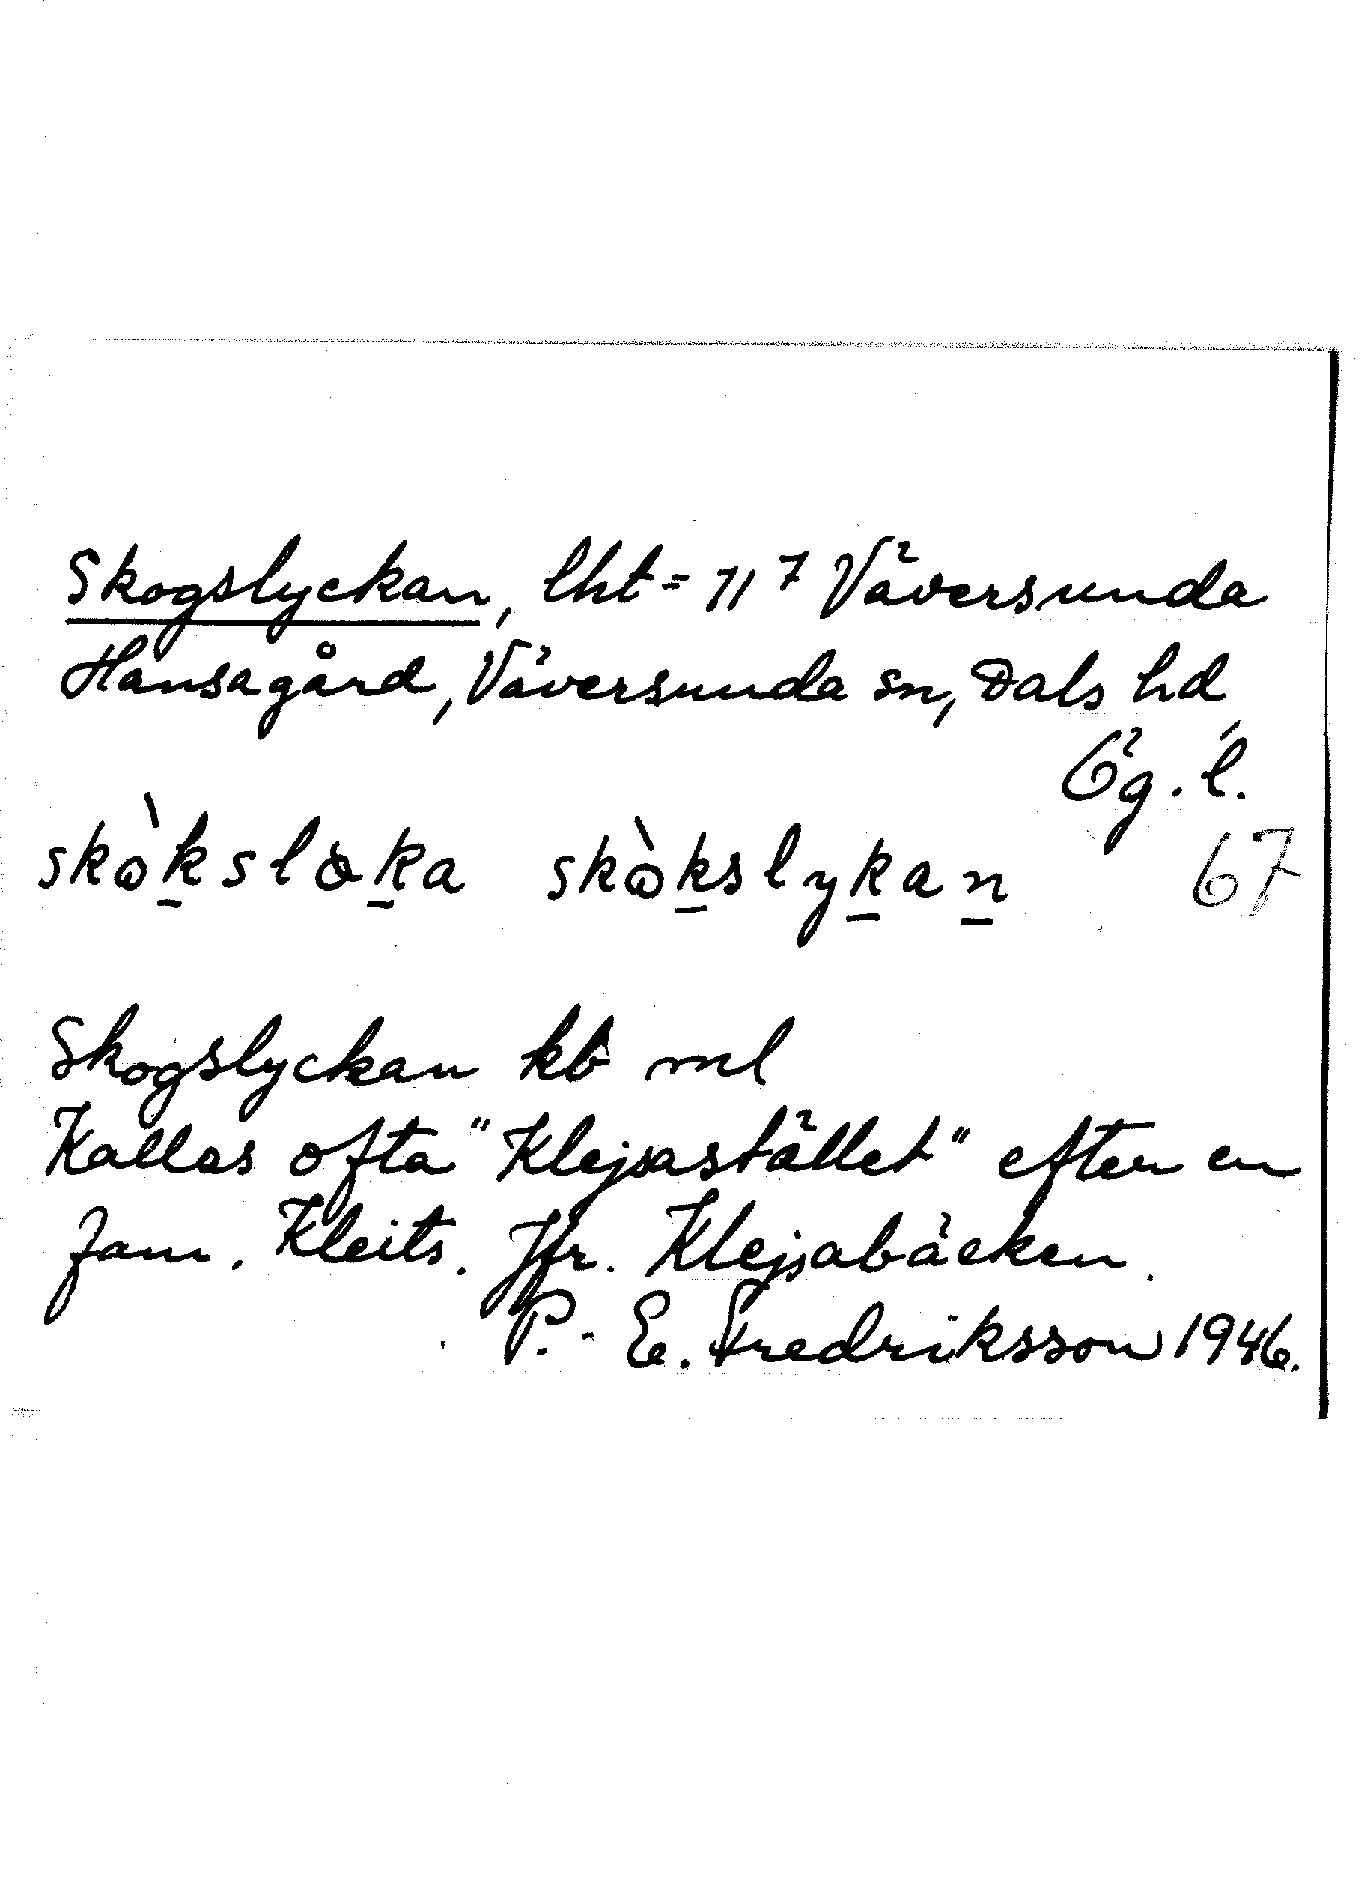 Skogslyckan, lht = 71⁷ Väversunda
Hansagård, Väversunda sn, Dals hd,
Ög. l.
skò̀ksloka skò̀kslykan 67
Skogslyckan kb ml
Kallas ofta "Klejsastället" efter en
fam. Kleits. Jfr. Klejsabäcken.
P.-E. Fredriksson 1946.